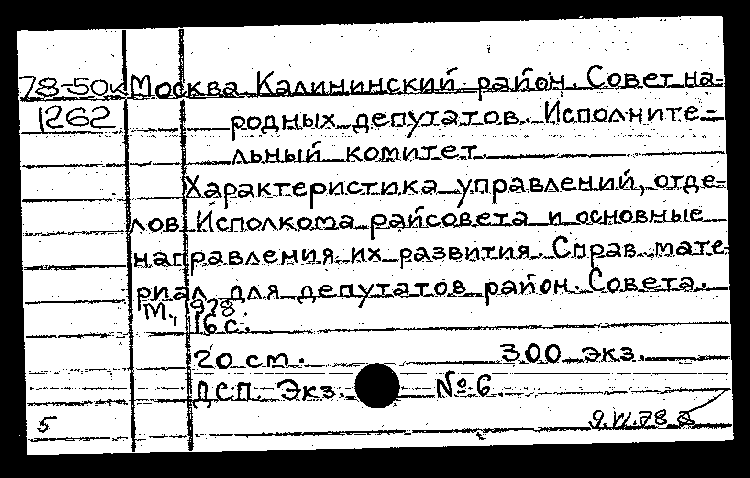 78-50к Москва. Калининский район. Совет на-
1262 родных депутатов. Исполните-
льный комитет
Характеристика управлений, отде-
лов Исполкома райсовета и основные
направления их развития. Справ. мате-
риал для депутатов район. Совета.
М., 978
16 с.
20 см. 300 экз.
ДСП. Экз. № 6.
5